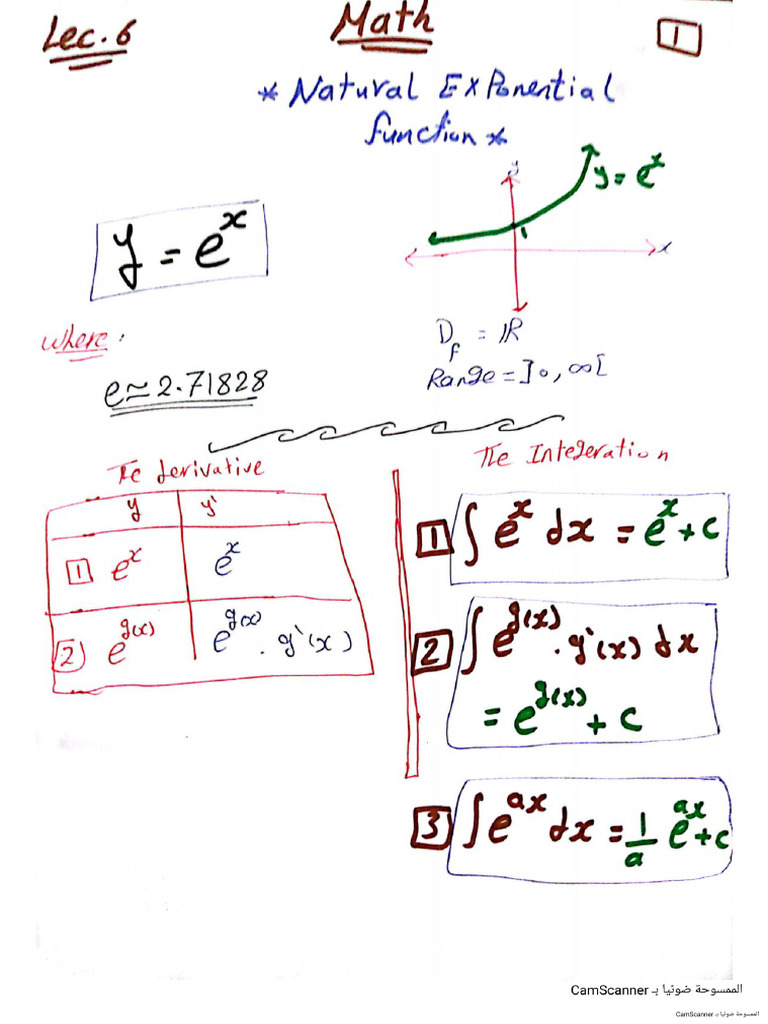 Lec. 6
Math
1
* Natural Exponential
function *
y = e^x
y
y = e^x
1
x
where:
e ≃ 2.71828
D_f = ℝ
Range = ]0, ∞[
The derivative
y y'
1 e^x e^x
2 e^g(x) e^g(x) . g'(x)
The Integeration
1 ∫ e^x dx = e^x + c
2 ∫ e^g(x) . g'(x) dx
= e^g(x) + c
3 ∫ e^ax dx = 1/a e^ax + c
الممسوحة ضوئيا بـ CamScanner
الممسوحة ضوئيا بـ CamScanner